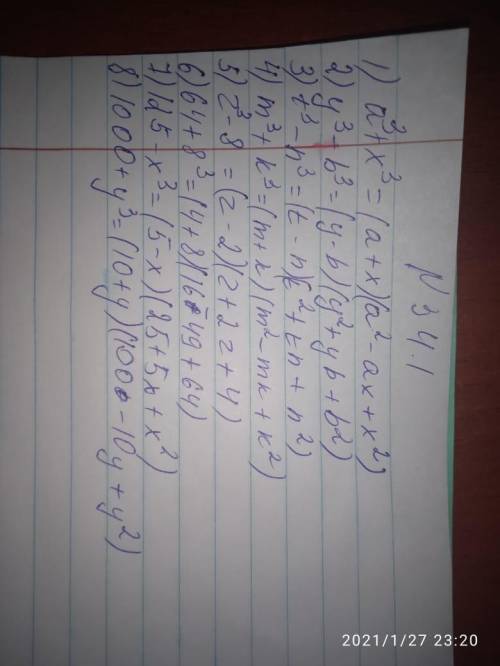 N 34.1
1) a³+x³=(a+x)(a²-ax+x²)
2) y³-b³=(y-b)(y²+yb+b²)
3) t³-n³=(t-n)(t²+tn+n²)
4) m³+k³=(m+k)(m²-mk+k²)
5) z³-8=(z-2)(z+2z+4)
6) 64+8³=(4+8)(16-49+64)
7) 125-x³=(5-x)(25+5x+x²)
8) 1000+y³=(10+y)(100-10y+y²)
2021/1/27 23:20